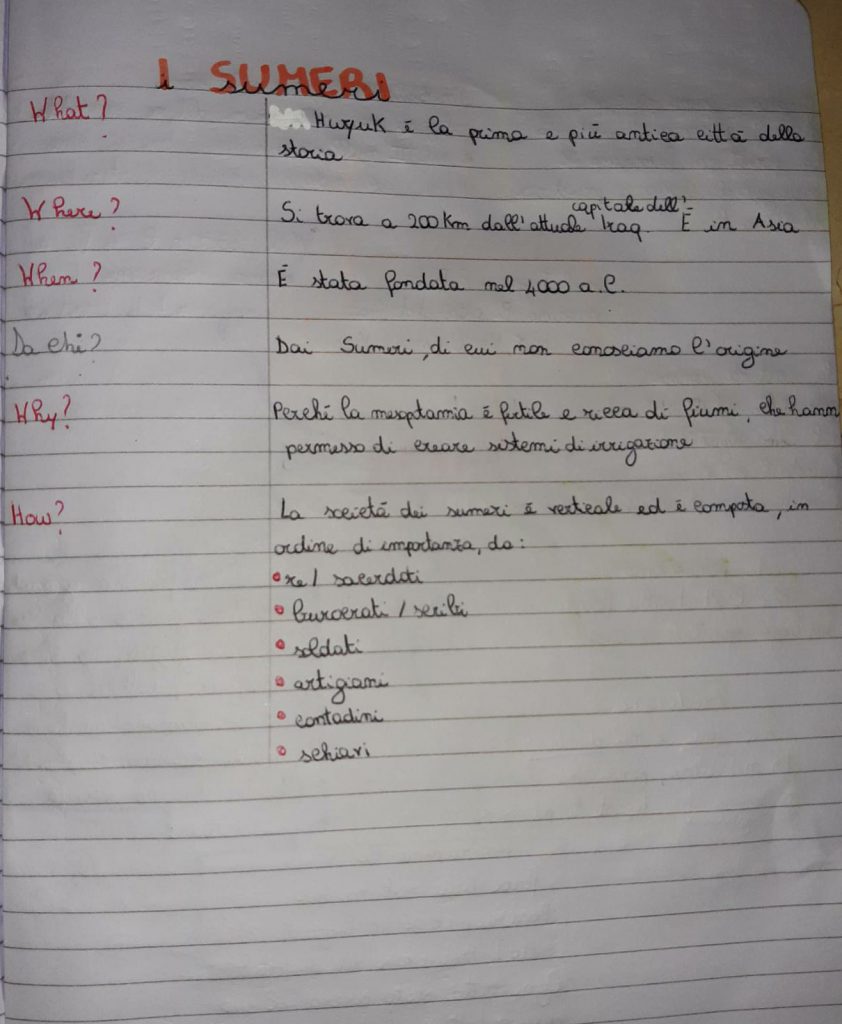 I SUMERI
i sumeri
What? Huquk è la prima e più antica città della
storia
capitale dell'
Where? Si trova a 200 Km dall'attuale Iraq. È in Asia
When? È stata fondata nel 4000 a.C.
Da chi? Dai Sumeri, di cui non conosciamo l'origine
Why? Perché la mesoptamia è fertile e ricca di fiumi, che hann
permesso di creare sistemi di irrigazione
How? La società dei sumeri è verticale ed è composta, in
ordine di importanza, da:
• re / sacerdoti
• burocrati / scribi
• soldati
• artigiani
• contadini
• schiavi